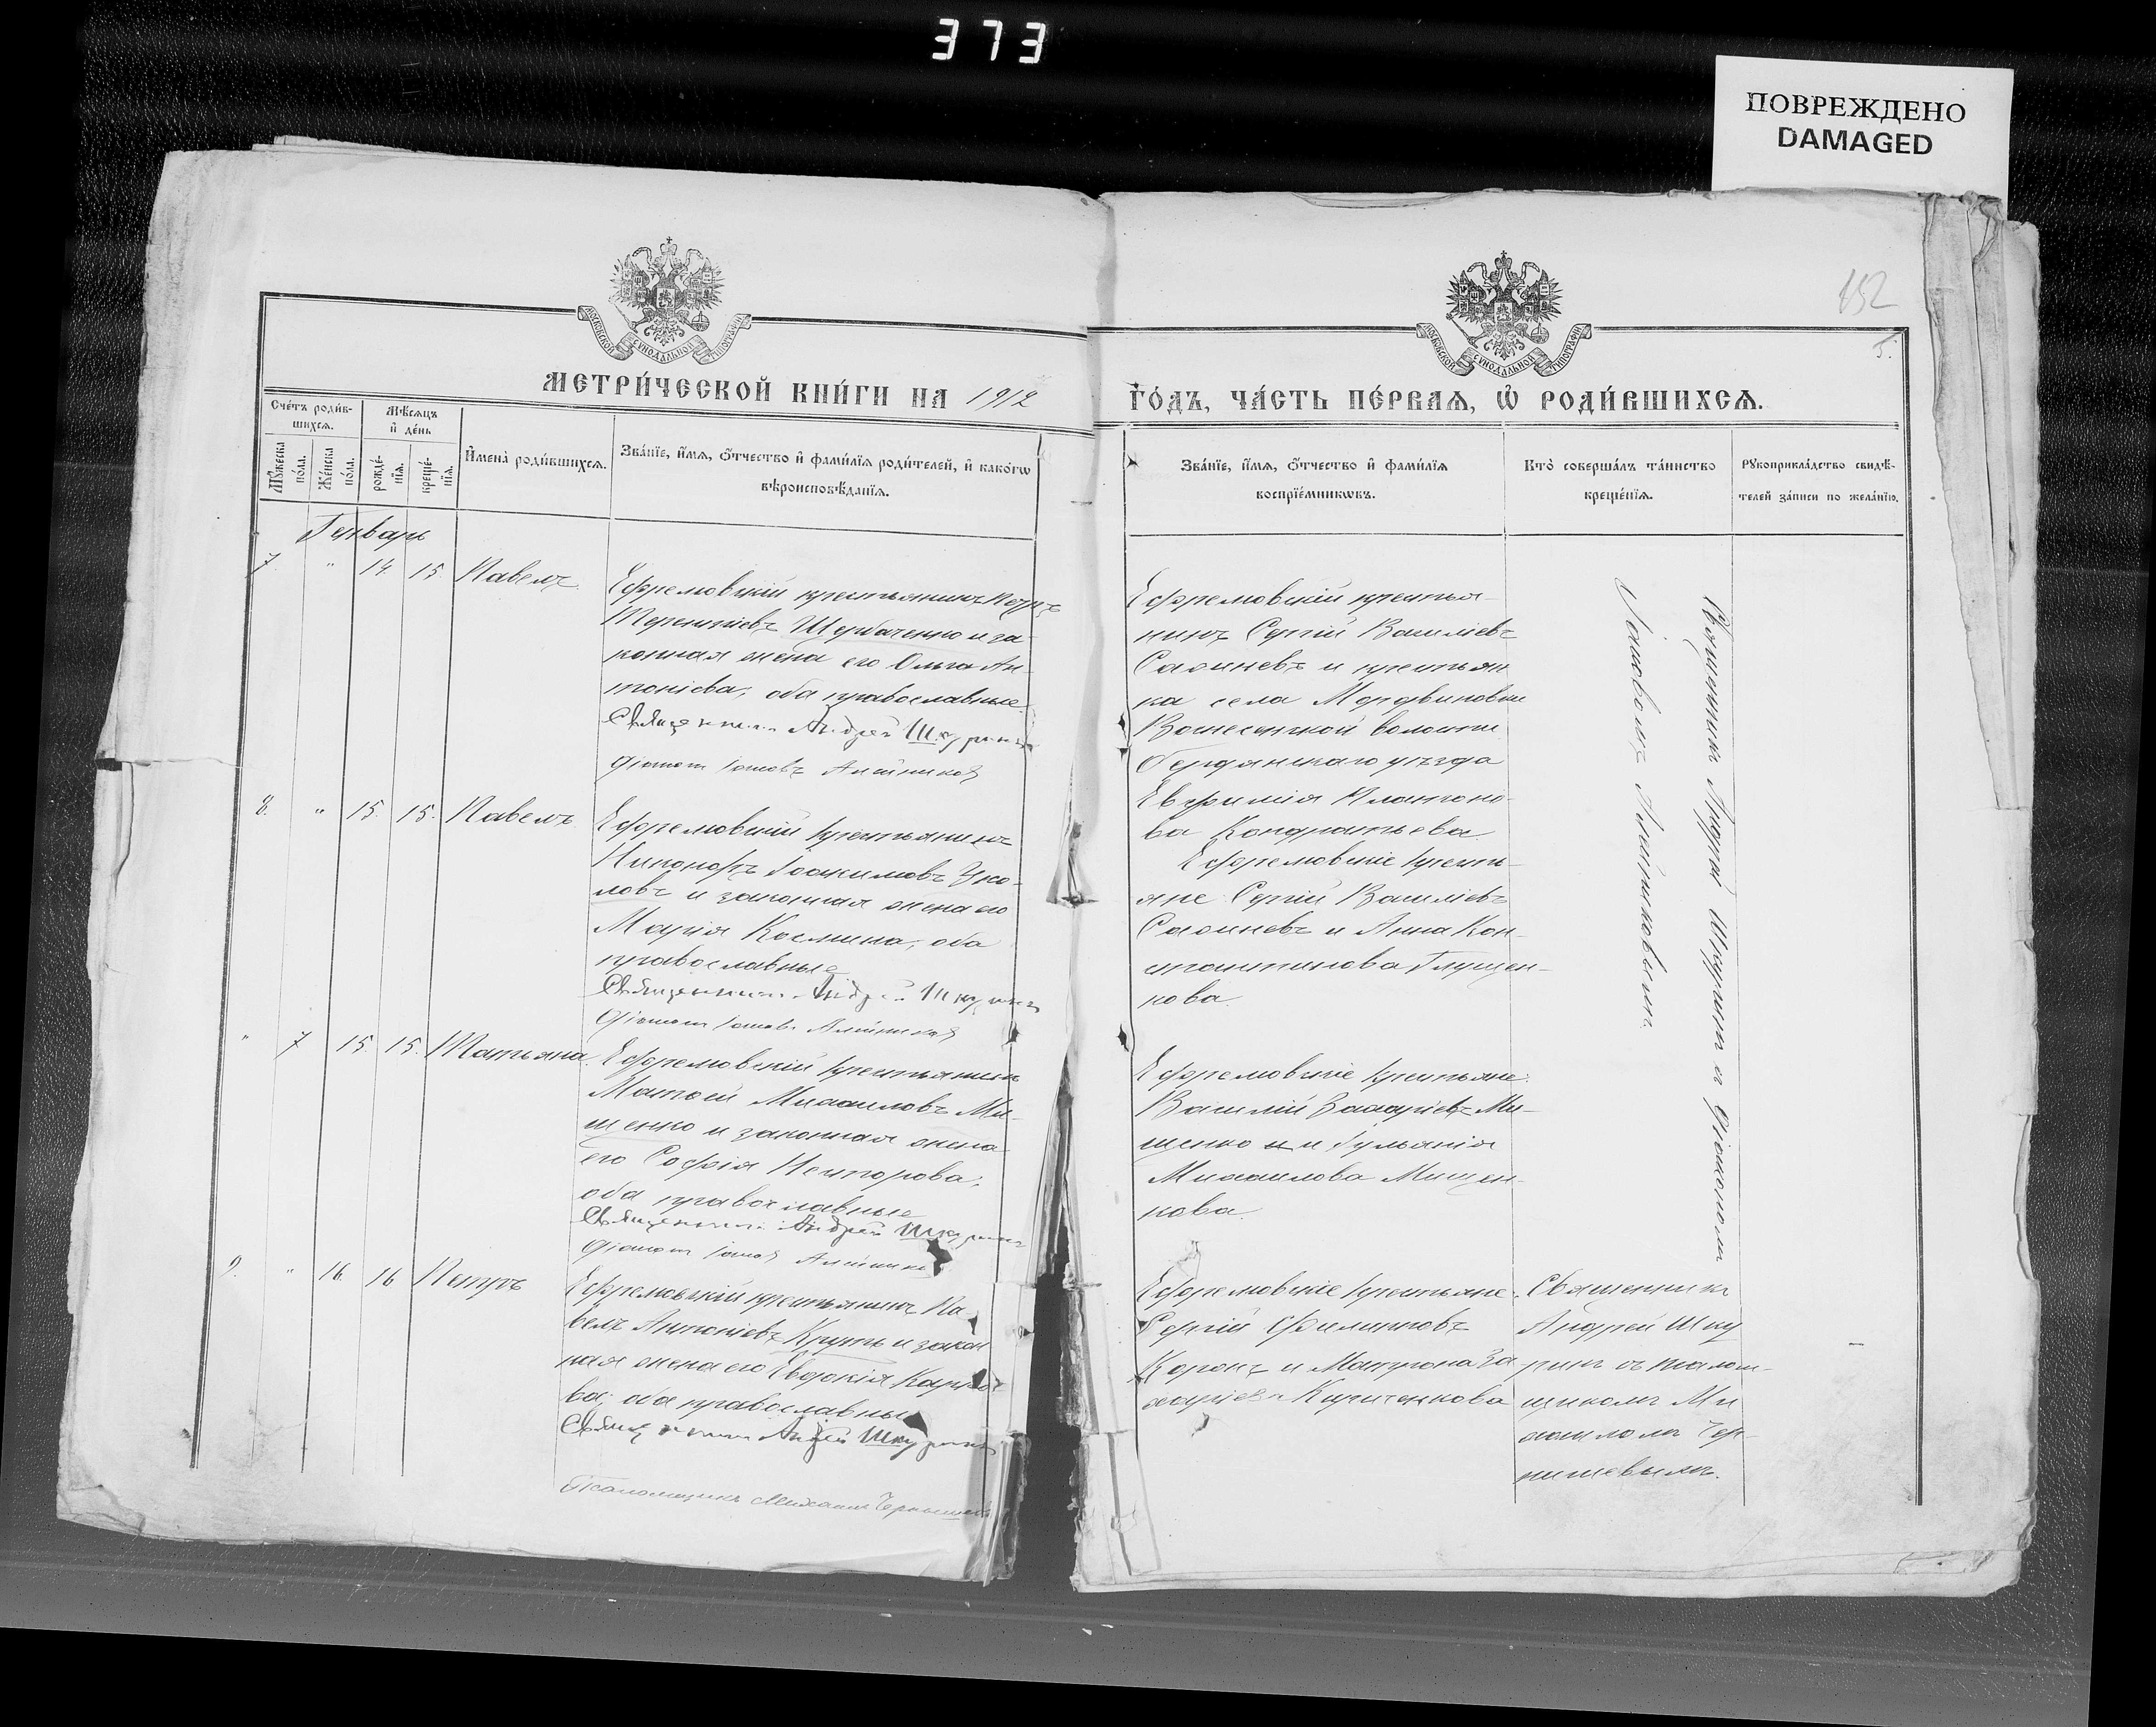 373
ПОВРЕЖДЕНО
DAMAGED
152
5.
МОСКОВСКОЙ СУНОДАЛЬНОЙ ТИПОГРАФІИ
МОСКОВСКОЙ СУНОДАЛЬНОЙ ТИПОГРАФІИ
МЕТРИ́ЧЕСКОЙ КНИ́ГИ НА 1912
ГО́ДЪ, ЧА́СТЬ ПЕ́РВАѦ, Ѡ РОДИ́ВШИХСѦ.
Сче́тъ роди́в-
шихсѧ.
Мѣ́сѧцъ
и҆ де́нь
Мꙋ́жеска
по́ла.
Же́нска
по́ла.
рожде́-
нїѧ.
креще́-
нїѧ.
И҆мена̀ роди́вшихсѧ.
Зва́нїе, и҆́мѧ, ѻ҆́тчество и҆ фами́лїѧ роди́телей, и҆ како́гѡ
вѣроисповѣ́данїѧ.
Зва́нїе, и҆́мѧ, ѻ҆́тчество и҆ фами́лїѧ
воспрїе́мникѡвъ.
Кто̀ соверша́лъ та́инство
креще́нїѧ.
Рꙋкоприкла́дство свидѣ́-
телей за́писи по жела́нїю.
Генварь
7. " 14. 15. Павелъ
Ефремовскій крестьянинъ Петръ
Терентіевъ Щербаченко и за-
конная жена его Ольга Ан-
тоніева, оба православные.
Священникъ Андрей Шкуринъ
Діаконъ Іаковъ Алейниковъ
Ефремовскій крестья-
нинъ Сергій Василіевъ
и крестьян
ка села Мордвиновки
Вознесенской волости
Бердянскаго уѣзда
Евфимія Платоно-
ва Кондратьева
Священникъ Андрей Шкуринъ съ Діакономъ
Іаковомъ Алейниковымъ.
8. " 15. 15. Павелъ
Ефремовскій крестьянинъ
Никаноръ Іоакимовъ Уко-
ловъ и законная жена его
Марія Космина, оба
православные
Священникъ Андрей Шкуринъ
Діаконъ Іаковъ Алейниковъ
Ефремовскіе кресть-
яне: Сергій Василіевъ
и Анна Кон-
стантинова Глущен-
кова.
" 7 15. 15. Татьяна.
Ефремовскій крестьянинъ
Матѳей Михаиловъ Ми-
щенко и законная жена
его Софія Несторова,
оба православные
Священникъ Андрей Шкуринъ
Діаконъ Іаковъ Алейников
Ефремовскіе крестьяне:
Василій Захаріевъ Ми-
щенко и и Іульянія
Михаилова Мищен-
кова.
9. " 16. 16 Петръ
Ефремовскій крестьянинъ Па-
велъ Антоніевъ Круть и закон
ная жена его Евдокія Карпо-
ва, оба православные
Священникъ Андрей Шкуринъ
Псаломщикъ Михаилъ Чернышевъ
Ефремовскіе крестьяне:
Сергій Филипповъ
Коронъ и Матрона За
харіева Кириченкова
Священникъ
Андрей Шку
ринъ съ псалом-
щикомъ Ми
хаиломъ Чер-
нышевымъ.